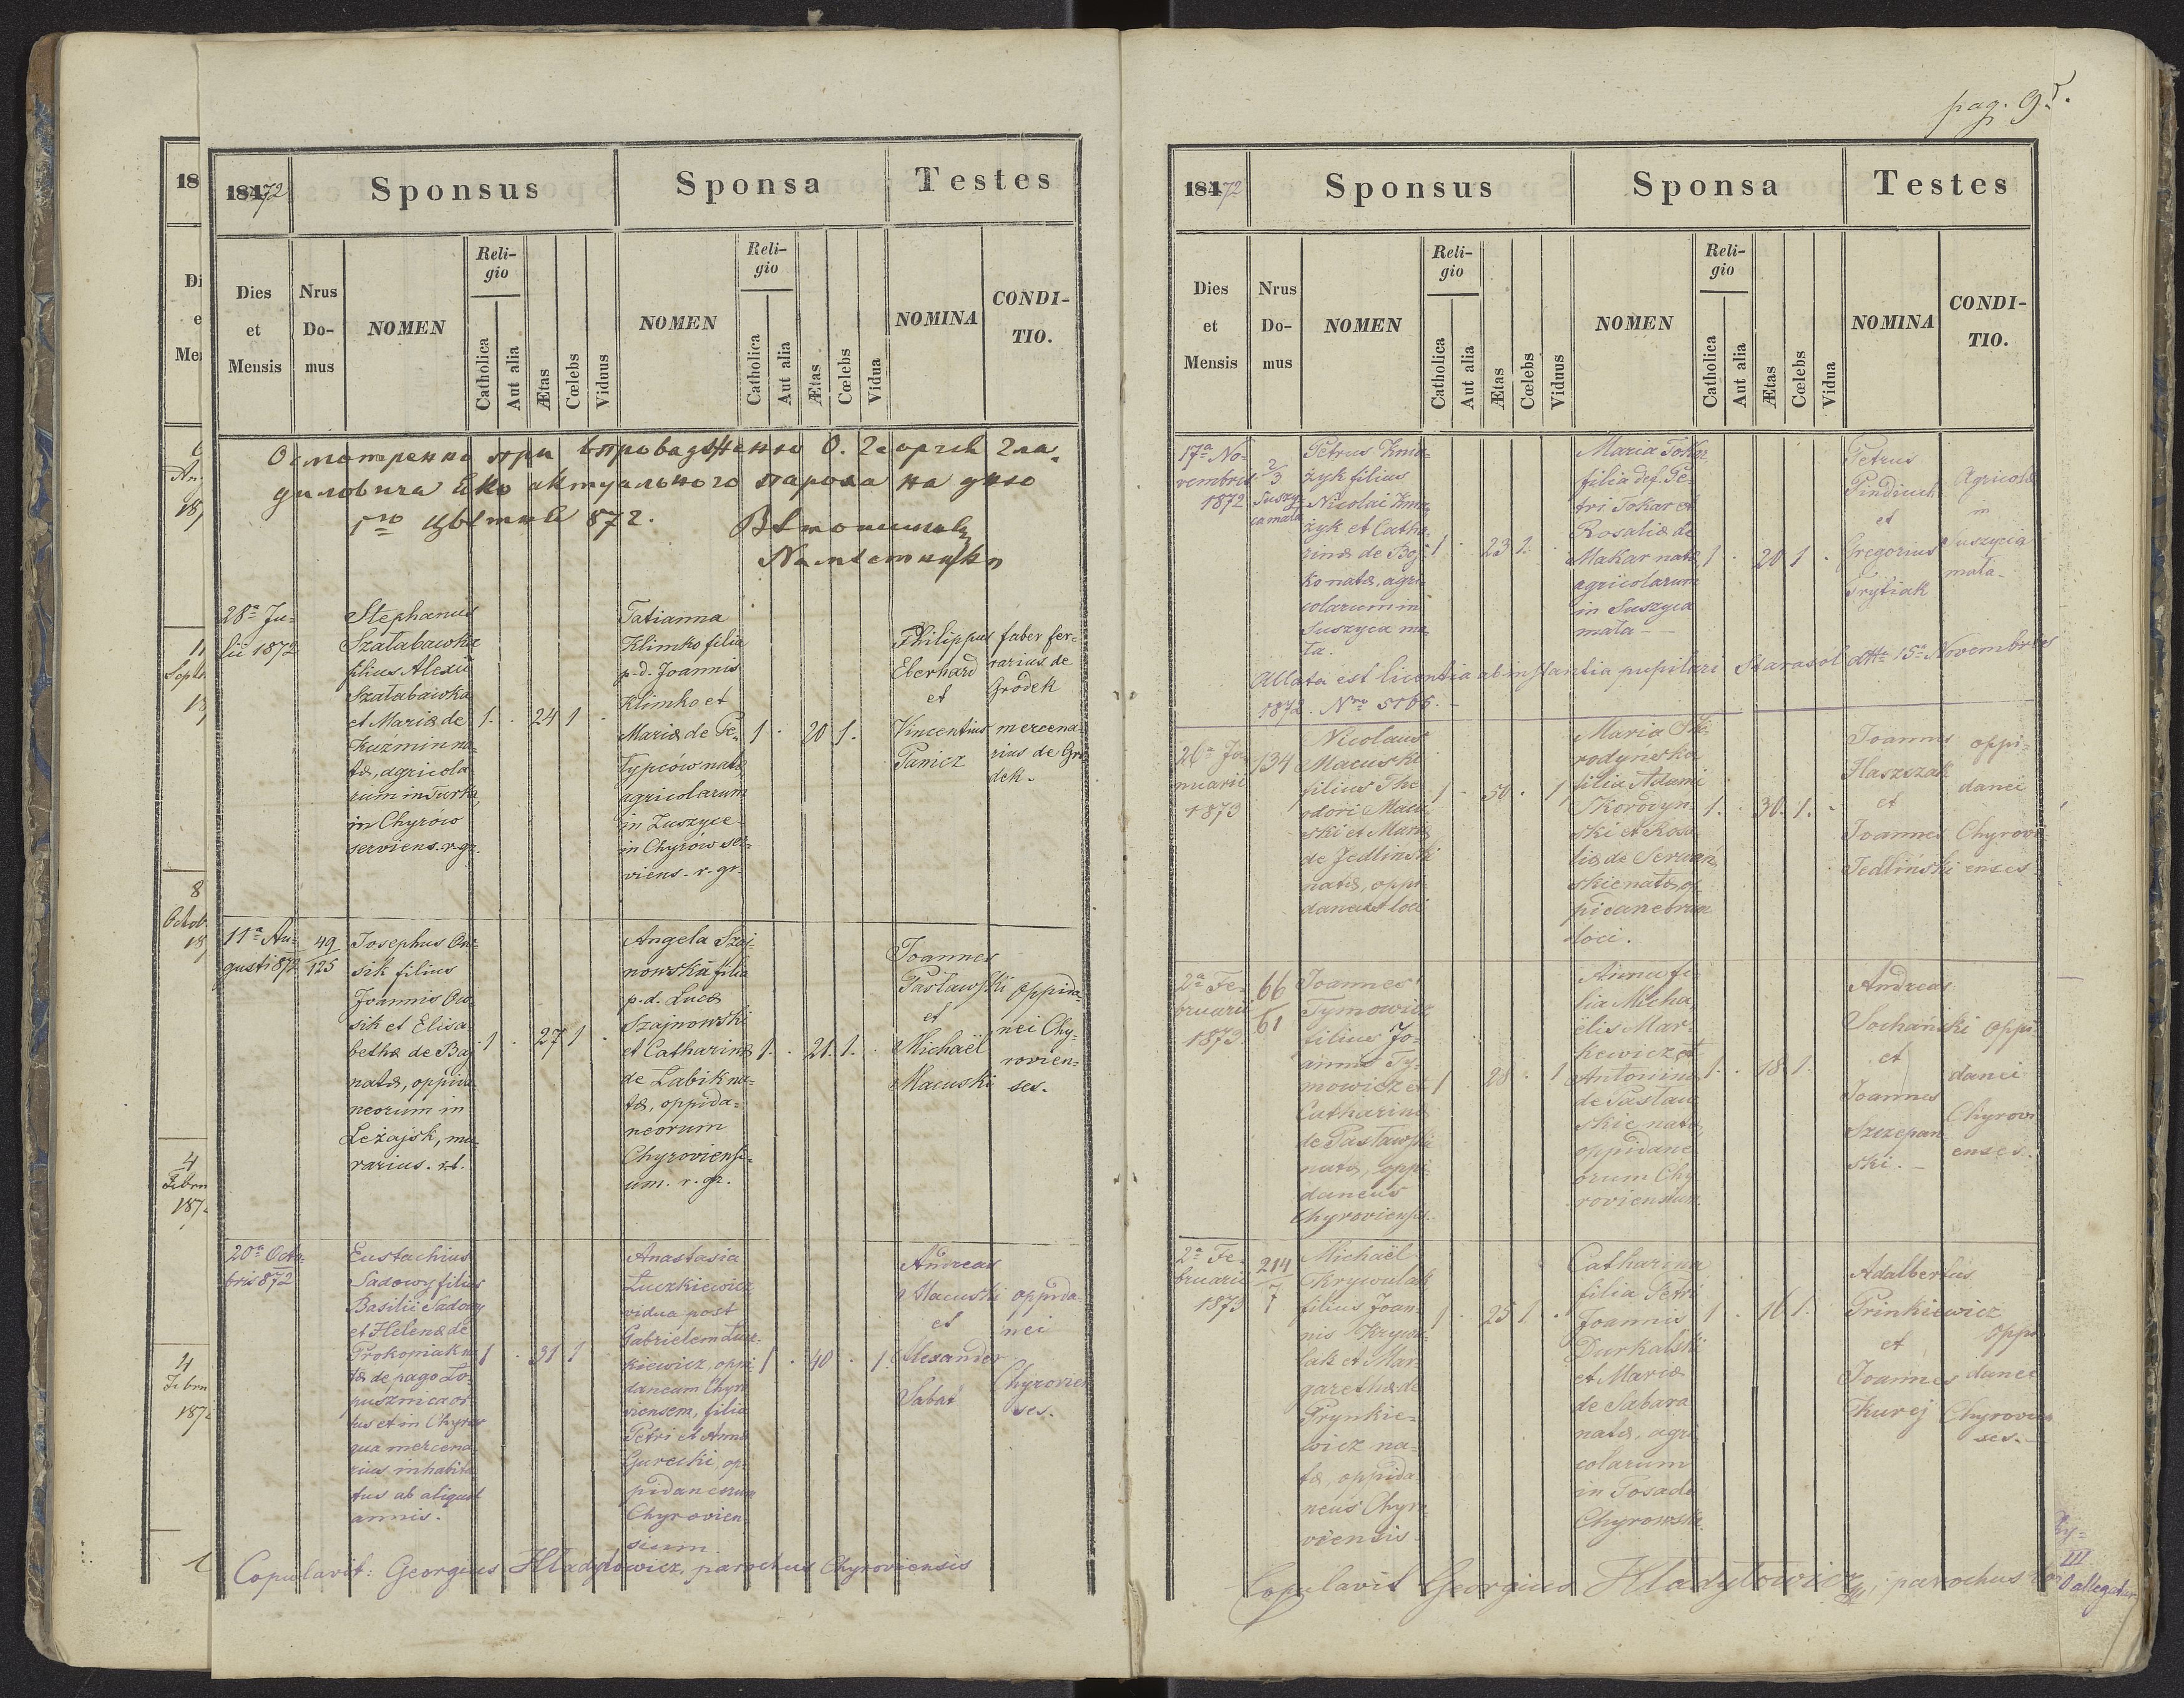 pag. 9
1872
Sponsus
Sponsa
Testes
Dies et Mensis
Nrus Domus
NOMEN
Religio
Catholica
Aut alia
Ætas
Cœlebs
Viduus
NOMEN
Religio
Catholica
Aut alia
Ætas
Cœlebs
Vidua
NOMINA
CONDITIO.
28ª Ju-
lii 1872
Stephanus
Szałabawka
filius Alexii
Szałabawka
et Mariæ de
Kuźmin na-
tæ, agricola-
rum in Turka,
in Chyrów
serviens. r. gr.
1 . 24 1 .
Tatianna
Klimko filia
p. d. Joannis
Klimko et
Mariæ de Pe-
typców natæ,
agricolarum
in
in Chyrów ser-
viens - r. gr.
1 . 20 1 .
Philippus
Eberhard
et
Vincentius
Panicz
faber fer-
rarius de
Gródek
mercena-
rius de Gró-
dek.
11ª Au-
gusti 872
49
125
Josephus
sik filius
Joannis Ow-
sik et Elisa-
bethæ de Baj
natæ, oppida-
neorum in
Leżajsk, mu-
rarius. r. l.
1 . 27 1 .
Angela Szaj-
nowska filia
p. d. Lucæ
Szajnowski
et Catharinæ
de Łabik na-
tæ, oppida-
neorum
Chyroviensi-
um. r. gr.
1 . 21. 1. .
Joannes
Pasławski
et
Michaël
Macuski
oppida-
nei Chy-
rovien-
ses.
20ª Octo-
bris 872
Eustachius
Sadowy filius
Basilii Sadowy
et Helenæ de
Prokopiak na-
tæ de pago Ło-
pusznica or-
tus et in Chyrów
qua mercena-
rius inhabita-
tus ab aliquot
annis.
1 . 31 1
Anastasia
Łuczkiewicz
vidua post
Gabrielem Łucz-
kiewicz, oppi-
daneum Chyro-
viensem, filia
Petri et Annæ
Gurecki, op-
pidaneorum
Chyrovien-
sium
1 . 40 . 1.
Andreas
Macuski
et
Alexander
Sabat
oppida-
nei
Chyrovien-
ses.
Copulavit: Georgius Hładyłowicz, parochus Chyroviensis
1872
Sponsus
Sponsa
Testes
Dies et Mensis
Nrus Domus
NOMEN
Religio
Catholica
Aut alia
Ætas
Cœlebs
Viduus
NOMEN
Religio
Catholica
Aut alia
Ætas
Cœlebs
Vidua
NOMINA
CONDITIO.
17ª No-
vembris
1872
2/3
Suszy-
ca mała
Petrus Kmia-
żyk filius
Nicolai Kmia-
żyk et Catha-
rinæ de Boj-
ko natæ, agri-
colarum in
Suszyca ma-
ła.
1 . 23 1. .
Maria Tokar
filia def. Pe-
tri Tokar et
Rosaliæ de
Makar natæ
agricolarum
in Suszyca
mała -
1 . 20 1 .
Petrus
Pindiuch
et
Gregorius
Frytiak
Agricolæ
in
Suszyca
mała -
Allata est licentia ab instantia pupilari Starasol dtto 15ª Novembris
1872. Nro 5165. -
26ª Ja-
nuarii
1873
134
Nicolaus
Macuski
filius The-
odori Macu-
ski et Mariæ
de Jedliński
natæ, oppi-
daneus loci
1 - 50 . 1
Maria Sko-
rodyńska
filia Adami
Skorodyn-
ski et Rosa-
liæ de
skie natæ op-
pidaneorum
loci.
1. . 30. 1. .
Joannes
Haszczak
et
Joannes
Jedliński
oppi-
danei
Chyrovi-
enses
2ª Fe-
bruarii
1873.
66
61
Joannes
Tymowicz
filius Jo-
annis Ty-
mowicz et
Catharinæ
de Pasławski
natæ, oppi-
daneus
Chyroviensis.
1 . 28 . 1
Anna fi-
lia Micha-
ëlis Mar-
kewicz et
Antoninæ
de Pasław-
skie natæ,
oppidane-
orum Chy-
roviensium.
1. . 18 1.
Andreas
Sochański
et
Joannes
Szczepan-
ski. -
oppi-
danei
Chyrovi-
enses.
2ª Fe-
bruarii
1873
214
7
Michaël
Krywulak
filius Joan-
nis Krywu-
lak et Mar-
garethæ de
Prynkie-
wicz na-
tæ, oppida-
neus Chyro-
viensis
1 . 25 1 .
Catharina
filia Petri
Joannis
Durkalski
et Mariæ
de Sabara
natæ, agri-
colarum
in Posada
Chyrowska.
1 . 16 1.
Adalbertus
Prinkiewicz
et
Joannes
Kurej
oppi-
danei
Chyrovien-
ses.
Copulavit Georgius Hładyłowicz, parochus
allegatur